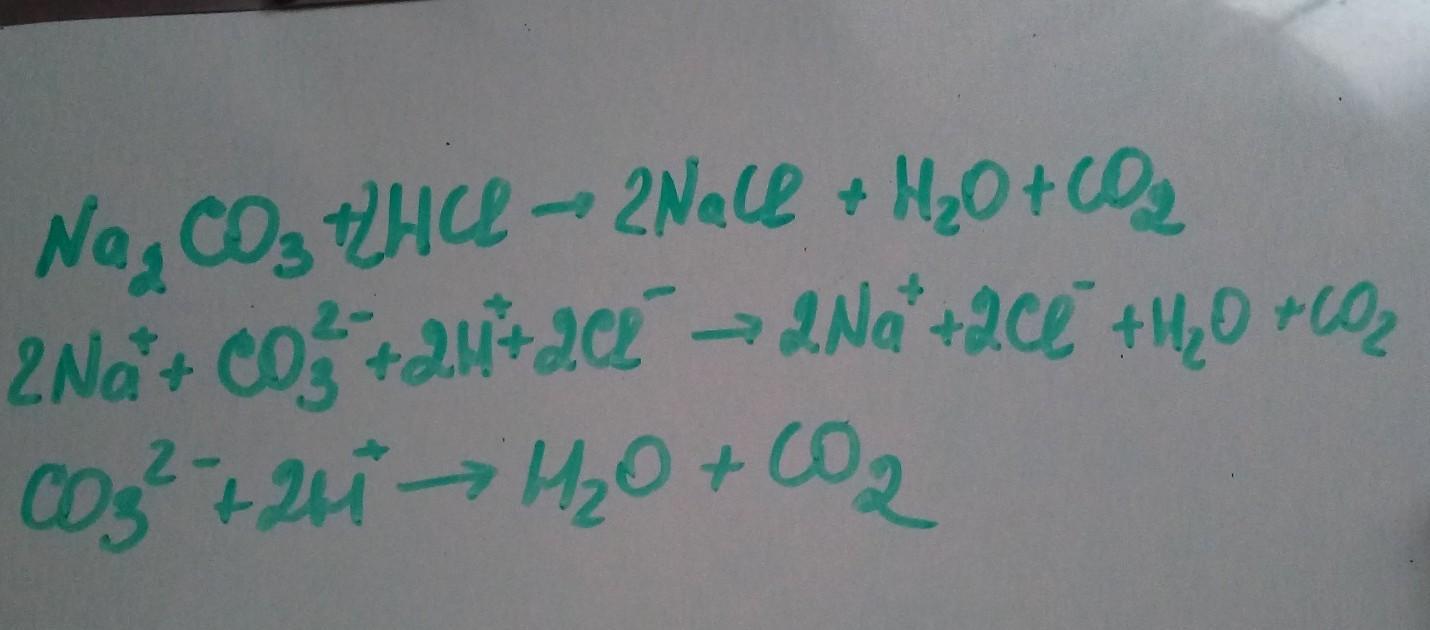 Na₂CO₃+2HCl→2NaCl + H₂O+CO₂
2Na⁺+ CO₃²⁻+2H⁺+2Cl⁻ → 2Na⁺+2Cl⁻+H₂O+CO₂
CO₃²⁻+2H⁺→ H₂O + CO₂